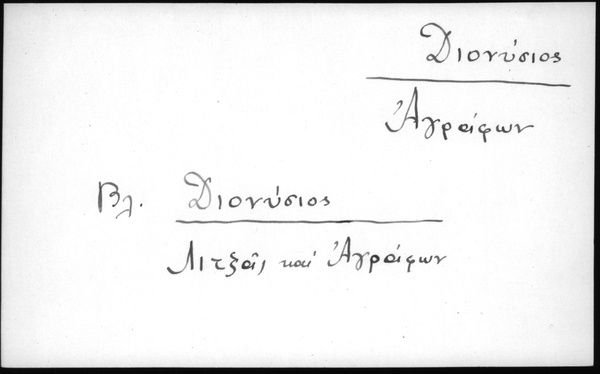 Διονύσιος
Ἀγράφων
Βλ. Διονύσιος
Λιτζᾶς καὶ Ἀγράφων